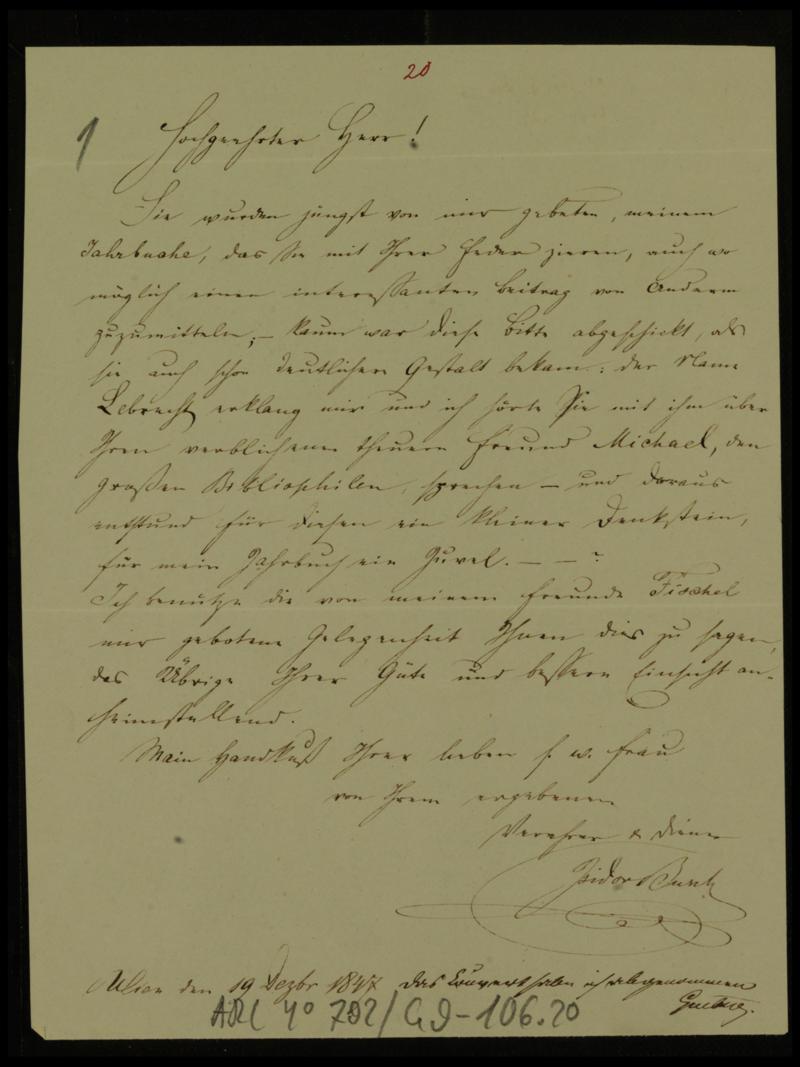 20
1
Hochgeehrter Herr!
Sie wurden jüngst von mir gebeten, meinem
Jahrbuche, das Sie mit Ihrer Feder zieren, auch wo
möglich einen interessanten Beitrag von Anderm
zuzumitteln; – kaum war diese Bitte abgeschickt, als
sie auch schon deutlichere Gestalt bekam: der Name
Lebrecht erklang mir und ich hörte Sie mit ihm über
Ihren verblichenen theuern Freund Michael, den
großen Bibliophilen, sprechen – und daraus
entstund für diesen ein kleiner Denkstein,
für mein Jahrbuch ein Juwel. – – ?
Ich benutze die von meinem Freunde Fischel
mir gebotene Gelegenheit Ihnen dies zu sagen,
das Übrige Ihrer Güte und bessern Einsicht an-
heimstellend.
Mein Handkuß Ihrer lieben s. w. Frau
von Ihrem ergebenen
Verehrer & Diener
Isidor Busch
Wien den 19 Dezbr 1847 das Couvert haben ich abgenommen
ARC 4° 792/G9-106.20